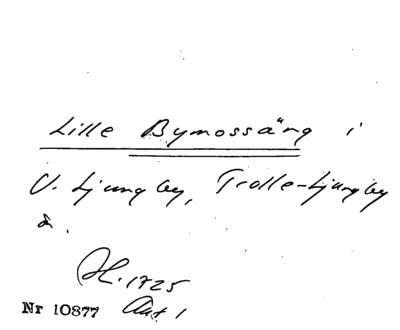 Lille Bymossäng i
V. Ljungby, Trolle-Ljungby
H. 1725
Nr 10877 Akt 1